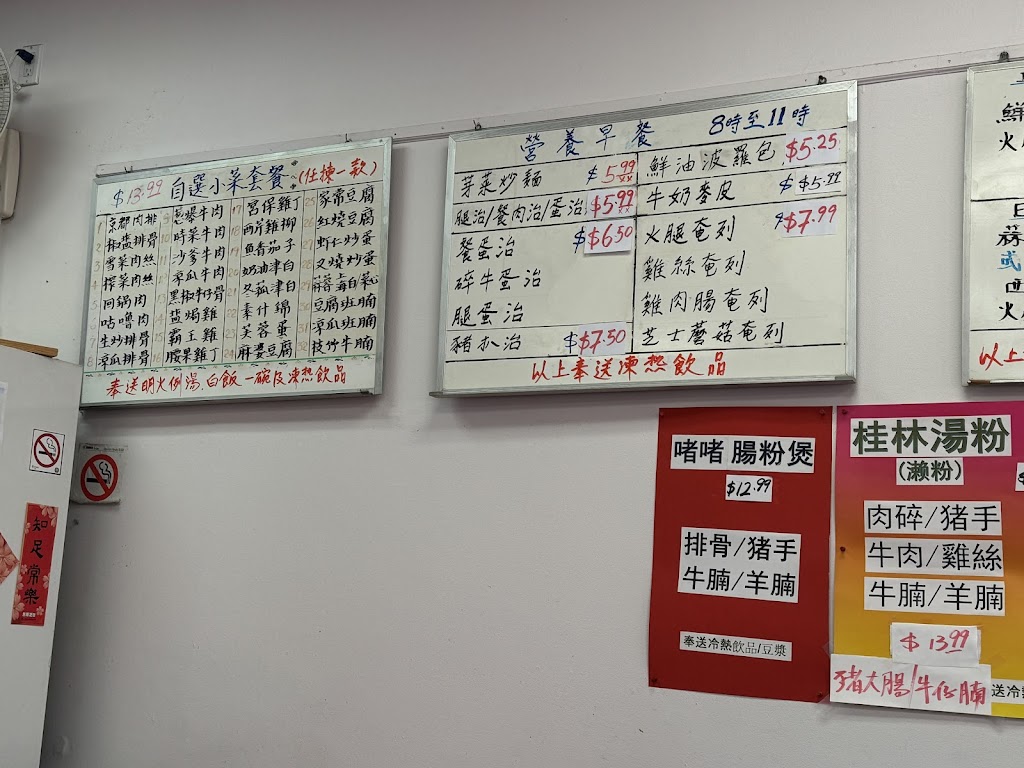 $13.99 自選小菜套餐(任揀一款)
京都肉排
椒鹽排骨
雪菜肉絲
榨菜肉絲
咕嚕肉
生炒排骨
涼瓜排骨
蔥爆牛肉
時菜牛肉
沙爹牛肉
涼瓜牛肉
黑椒牛仔骨
鹽焗雞
霸王雞
腰果雞丁
宮保雞丁
西芹雞柳
魚香茄子
奶油津白
冬菰津白
素什錦
芙蓉蛋
麻婆豆腐
家常豆腐
紅燒豆腐
蝦仁炒蛋
叉燒炒蛋
豆腐班腩
涼瓜班腩
枝竹牛腩
奉送明火例湯,白飯一碗及凍熱飲品
營養早餐 8時至11時
芽菜炒麵 $5.99
腿治/餐肉治/蛋治 $5.99
餐蛋治 $6.50
碎牛蛋治
腿蛋治
豬扒治 $7.50
鮮油波羅包 $5.25
牛奶麥皮 $5.99
火腿奄列 $7.99
雞絲奄列
雞肉腸奄列
芝士蘑菇奄列
以上奉送凍熱飲品
鮮
火
或
西
火
以上
知足常樂
啫啫腸粉煲
$12.99
排骨/猪手
牛腩/羊腩
奉送冷熱飲品/豆漿
桂林湯粉
(瀨粉)
肉碎/猪手
牛肉/雞絲
牛腩/羊腩
$13.99
豬大腸/牛仔腩
送冷